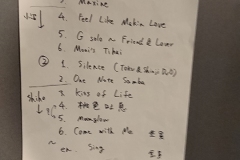 3. Maxine
4. Feel Like Makin Love
5. G solo ~ Friend & Lover
6. Moni's Tikai
②
1 Silence (Toku & Shinji Duo)
2. One Note Samba
3. Kiss of Life
4. 桃色
5. Moonglow
6. Come with Me
~
en. Sing